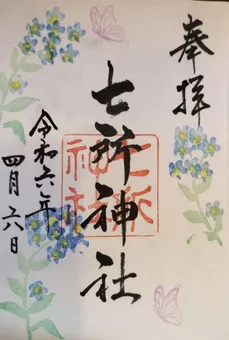 奉拝
七所神社
七所神社
令和六年
四月六日